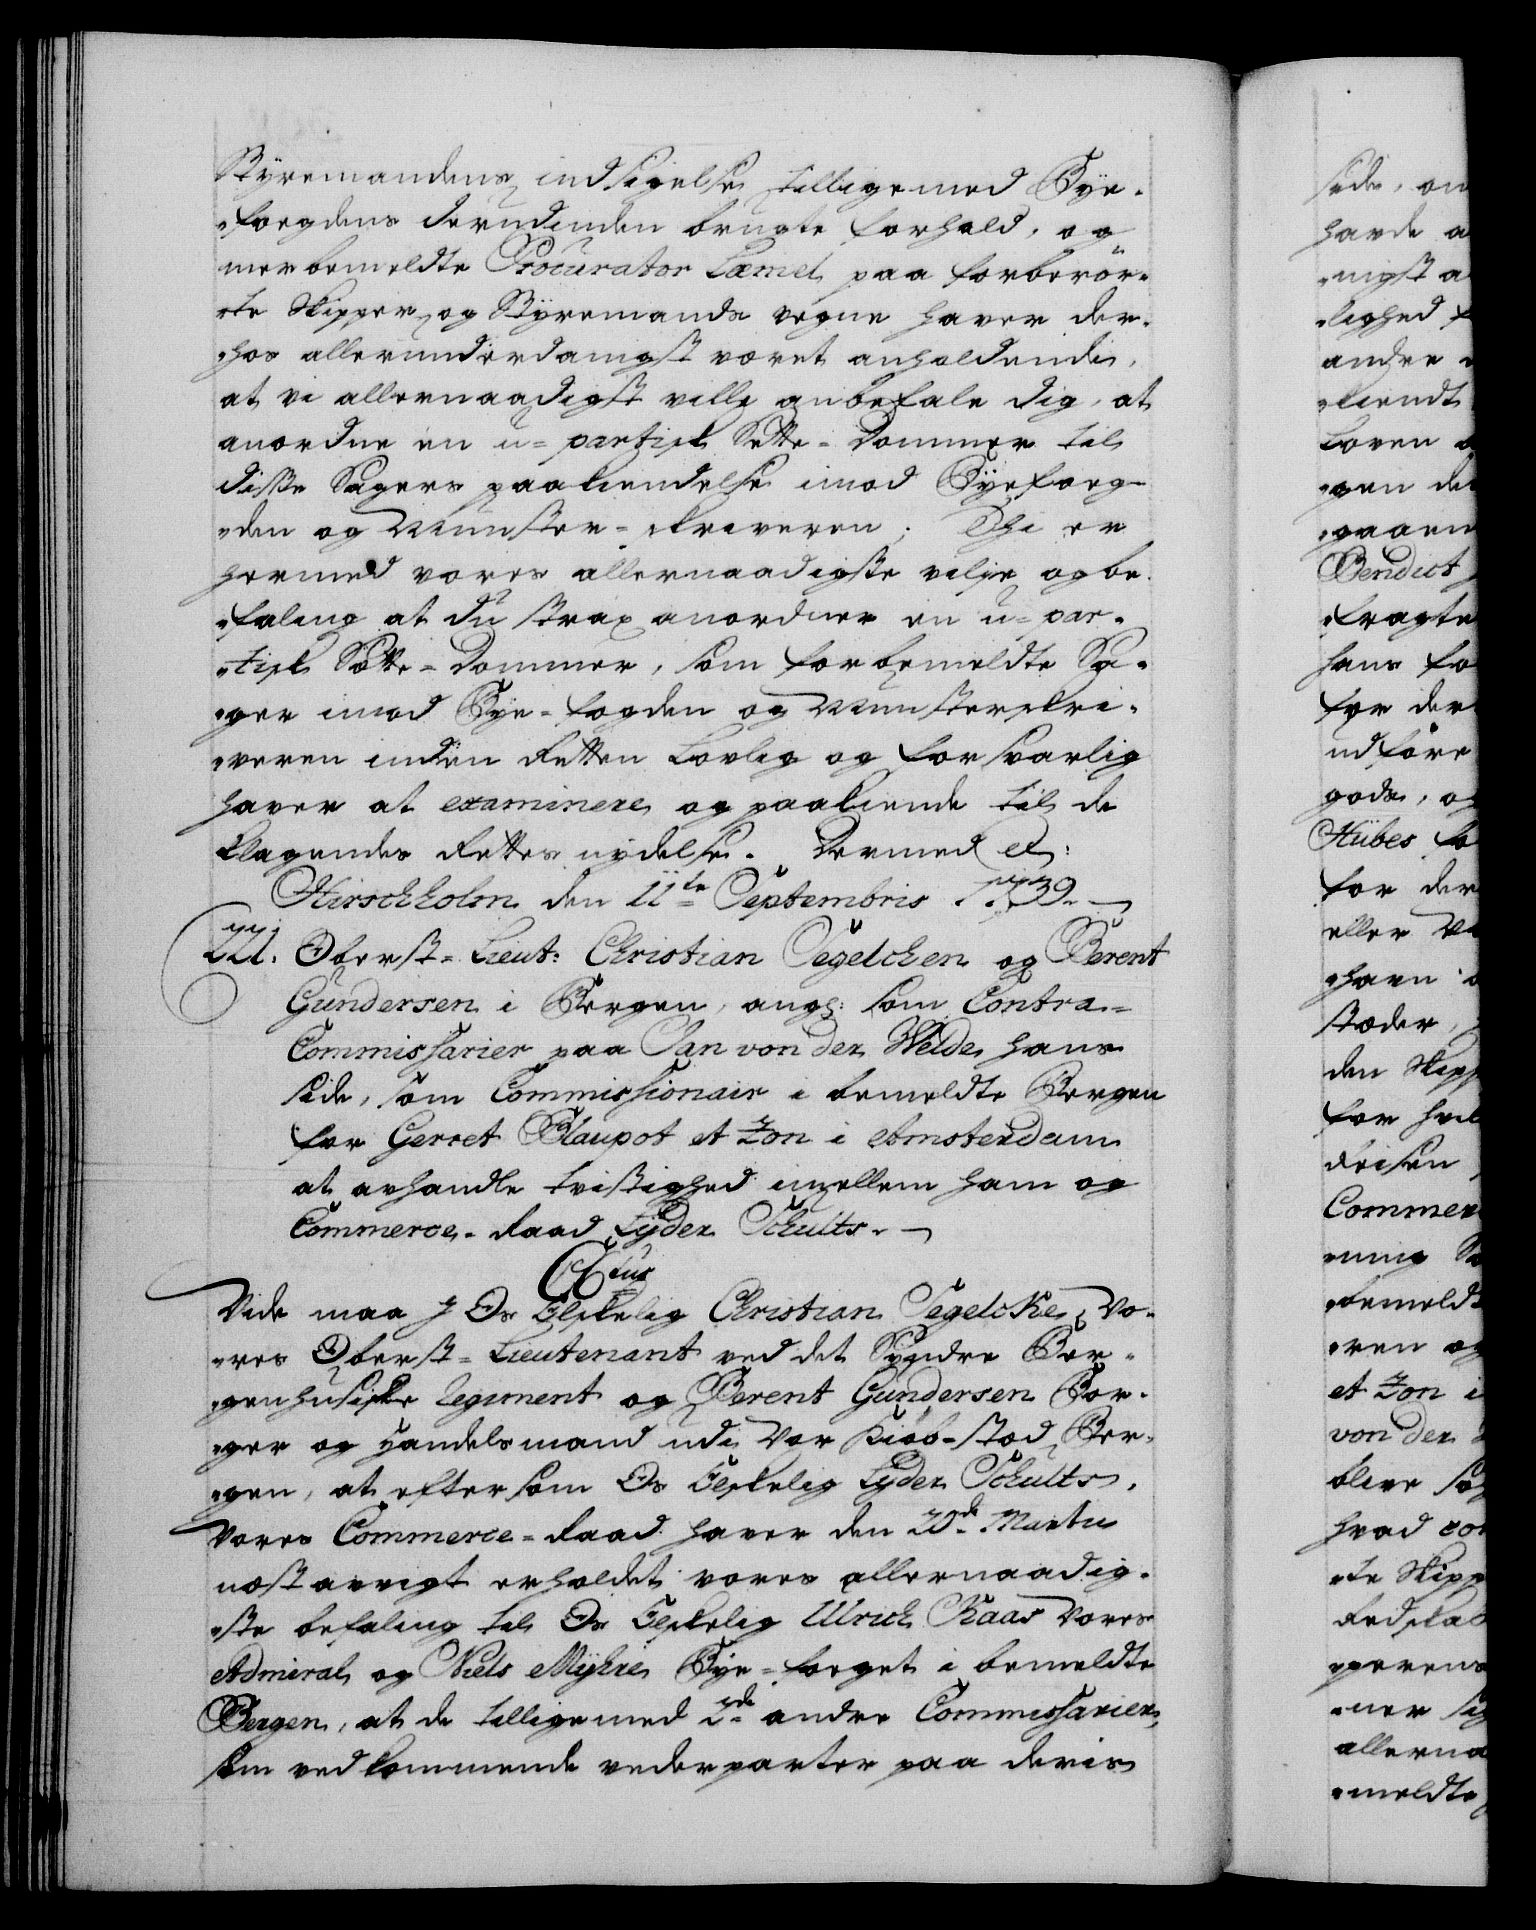 Styremandens indsigelse tilligemed Bye-
-foegdens derudinden brugte forhold, og
merbemeldte Procurator Lemet paa forberör-
-te Skipper og Styremands vegne haver der-
-hos allerunderdanigst været anholdende,
at vi allernaadigst ville anbefale dig, at
anordne en u-partisk Sette-Dommer til
disse Sagers paakiendelse imod Byefoeg-
-den og Munster-skriveren; Thi er
hermed vores allernaadigste vilje og be-
-faling at du strax anordner en u-par-
-tisk Sætte-Dommer, som forbemeldte Sa-
-ger imod Bye-fogden og Munsterskri-
-veren inden Retten Lovlig og forsvarlig
haver at examinere og paakiende til de
klagendes Rettes nydelse. Dermed etc:
Hirschholm den 11te Septembris 1739.
221. Oberst-Lieut: Christian Segelcken og Berent
Gundersen i Bergen, ang: som Contra-
Commissarier paa Jan von der Welde hans
side, som Commissionair i bemeldte Bergen
for Gerret Blaupot et Zon i Amsterdam
at avhandle tvistighed imellem ham og
Commerce-Raad Lyder Schults.
C6tus
Vide maa I Os Elskelig Christian Segelcke, Vo-
-res Oberst-Lieutenant ved det Syndre Ber-
-genhusiske Regiment og Berent Gundersen Bor-
-ger og Handelsmand udi Vor Kiöb-stæd Ber-
-gen, at eftersom Os Elskelig Lyder Schults,
Vores Commerce-Raad haver den 20de Martii
næst avvigt erholdet vores allernaadig-
-ste befaling til Os Elskelig Ulrich Kaas Vores
Admiral og Niels Myhre Bye-foeget i bemeldte
Bergen, at de tilligemed 2de andre Commissarier,
som vedkommende vederparter paa deris
side, om
havde a
-nigst a
-lighed f
andre
-kiendt
Loven
-gen de
-gaaen
Bendict
-fragte
hans fo
for der
udföre
gods, og
Hübes
for der
eller
-havn
stæder,
den Skipp
for hvil
Commer
-ning
-bemeldt
-ren og
et Zon i
von der
blive
hvad
-te Skipp
-ner
allerna
-meldte